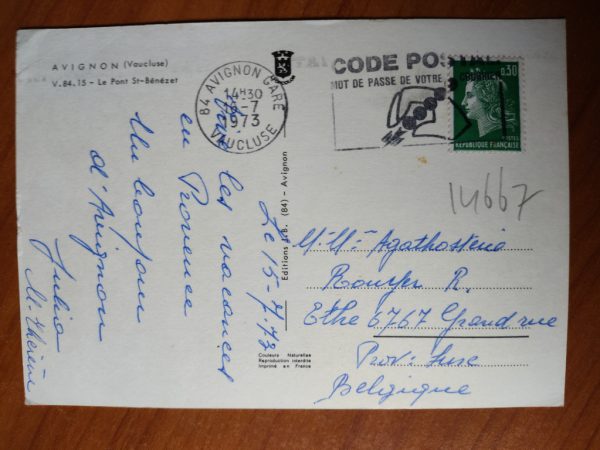 AVIGNON (Vaucluse)
V.84.15 - Le Pont St-Bénézet
84 AVIGNON GARE
14H30
16-7
1973
VAUCLUSE
CODE POSTAL
MOT DE PASSE DE VOTRE COURRIER
0,30
POSTES
REPUBLIQUE FRANÇAISE
14667
Le 15.7.73
les vacances
en Provence
Un bonjour
d'Avignon
Julia
M. Thérèse
Editions "E.B. (84) - Avignon
M. Mme Agathostenia
R.
Ethe 6767 Grand rue
Prov: Luxe
Belgique
Couleurs Naturelles
Reproduction interdite
Imprimé en France